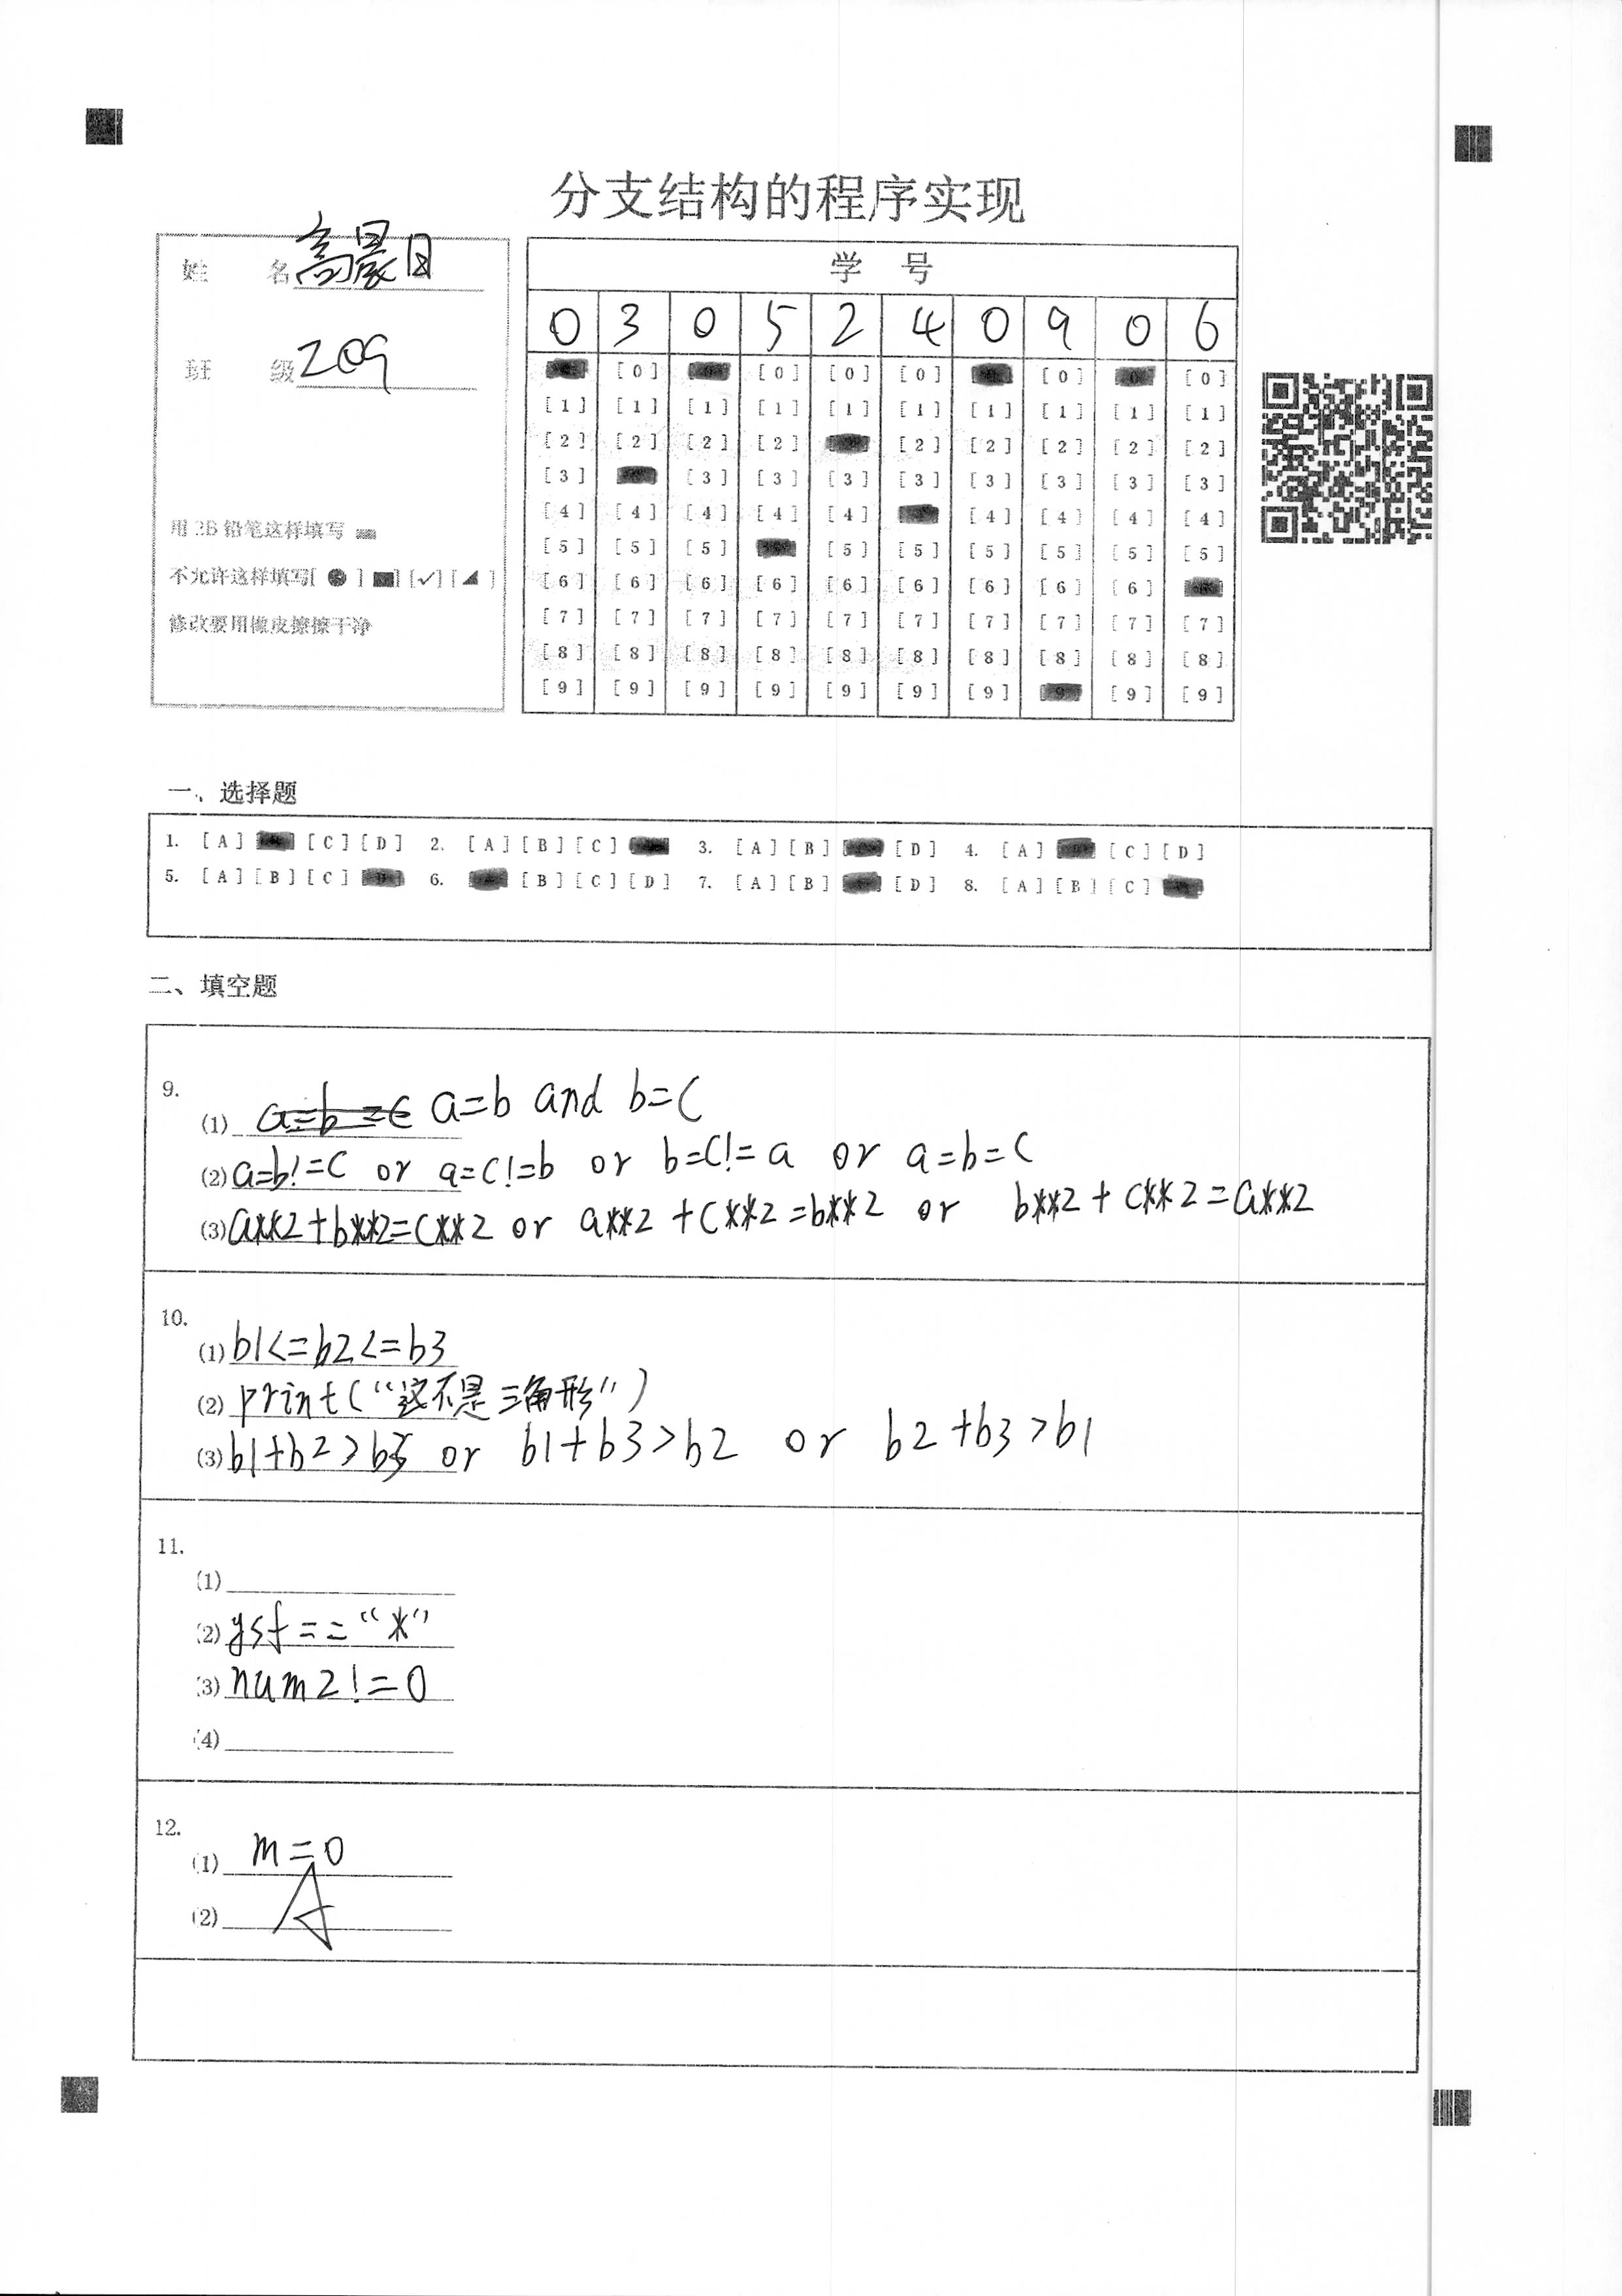 分支结构的程序实现
姓 名 高晨日
班 级 209
用 2B 铅笔这样填写
不允许这样填写[ ● ] [■] [✓] [◢ ]
修改要用橡皮擦擦干净
学 号
0 3 0 5 2 4 0 9 0 6
[0] [0] [0] [0] [0]
[1] [1] [1] [1] [1] [1] [1] [1] [1] [1]
[2] [2] [2] [2] [2] [2] [2] [2] [2]
[3] [3] [3] [3] [3] [3] [3] [3] [3]
[4] [4] [4] [4] [4] [4] [4] [4] [4]
[5] [5] [5] [5] [5] [5] [5] [5] [5]
[6] [6] [6] [6] [6] [6] [6] [6] [6]
[7] [7] [7] [7] [7] [7] [7] [7] [7] [7]
[8] [8] [8] [8] [8] [8] [8] [8] [8] [8]
[9] [9] [9] [9] [9] [9] [9] [9] [9] [9]
一、选择题
1. [A] [C] [D] 2. [A] [B] [C] 3. [A] [B] [D] 4. [A] [C] [D]
5. [A] [B] [C] 6. [B] [C] [D] 7. [A] [B] [D] 8. [A] [B] [C]
二、填空题
9.
(1) a=b=c a=b and b=c
(2) a=b!=c or a=c!=b or b=c!=a or a=b=c
(3) a**2+b**2=c**2 or a**2+c**2=b**2 or b**2+c**2=a**2
10.
(1) b1<=b2<=b3
(2) print("这不是三角形")
(3) b1+b2>b3 or b1+b3>b2 or b2+b3>b1
11.
(1)
(2) ysf=="*"
(3) num2!=0
(4)
12.
(1) m=0
(2) A